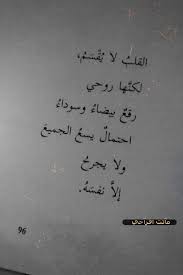 القلبُ لا يُقْسَمُ،
لكنَّها روحي
رقعٌ بيضاءُ وسوداءُ
احتمالٌ يسعُ الجميعَ
ولا يجرحُ
إلاَّ نفسَهُ.
ماتت افراحي
96